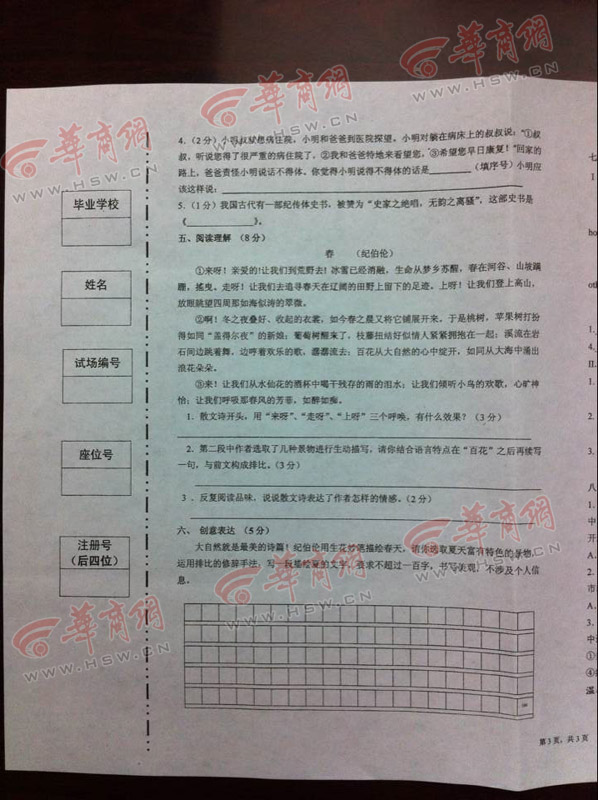 華商網
WWW.HSW.CN
華商網
WWW.HSW.CN
華商網
WWW.HSW.CN
毕业学校
姓名
试场编号
座位号
注册号
(后四位)
4.(2分)小明叔叔患病住院,小明和爸爸到医院探望。小明对躺在病床上的叔叔说:“①叔
叔,听说您得了很严重的病住院了,②我和爸爸特地来看望您,③希望您早日康复!”回家的
路上,爸爸责怪小明说话不得体。你觉得小明说得不得体的话是________(填序号)小明应
该这样说:
5.(1分)我国古代有一部纪传体史书,被赞为“史家之绝唱,无韵之离骚”,这部史书是
《________》。
五、阅读理解(8分)
春 (纪伯伦)
①来呀!亲爱的!让我们到荒野去!冰雪已经消融,生命从梦乡苏醒,春在河谷、山坡蹒
跚,摇曳。走呀!让我们去追寻春天在辽阔的田野上留下的足迹。上呀!让我们登上高山,
放眼眺望四周那如海似涛的翠微。
②啊!冬之夜叠好、收起的衣裳,如今春之晨又将它铺展开来。于是桃树,苹果树打扮
得如同“盖得尔夜”的新娘;葡萄树醒来了,枝藤扭结好似情人紧紧拥抱在一起;溪流在岩
石间边跳着舞、边哼着欢乐的歌,潺潺流去;百花从大自然的心中绽开,如同从大海中涌出
浪花朵朵。
③来!让我们从水仙花的酒杯中喝干残存的雨的泪水;让我们倾听小鸟的欢歌,心旷神
怡;让我们呼吸那春风的芳菲,如醉如痴。
1.散文诗开头,用“来呀”、“走呀”、“上呀”三个呼唤,有什么效果?(3分)
2.第二段中作者选取了几种景物进行生动描写,请你结合语言特点在“百花”之后再续写
一句,与前文构成排比。(3分)
3.反复阅读品味,说说散文诗表达了作者怎样的情感。(2分)
六、创意表达(5分)
大自然就是最美的诗篇!纪伯伦用生花妙笔描绘春天,请你选取夏天富有特色的景物,
运用排比的修辞手法,写一段描绘夏的文字。要求不超过一百字,书写美观,不涉及个人信
息。
100
第3页,共3页
華商網
WWW.HSW.CN
華商網
WWW.HSW.CN
華商網
WWW.HSW.CN
華商網
WWW.HSW.CN